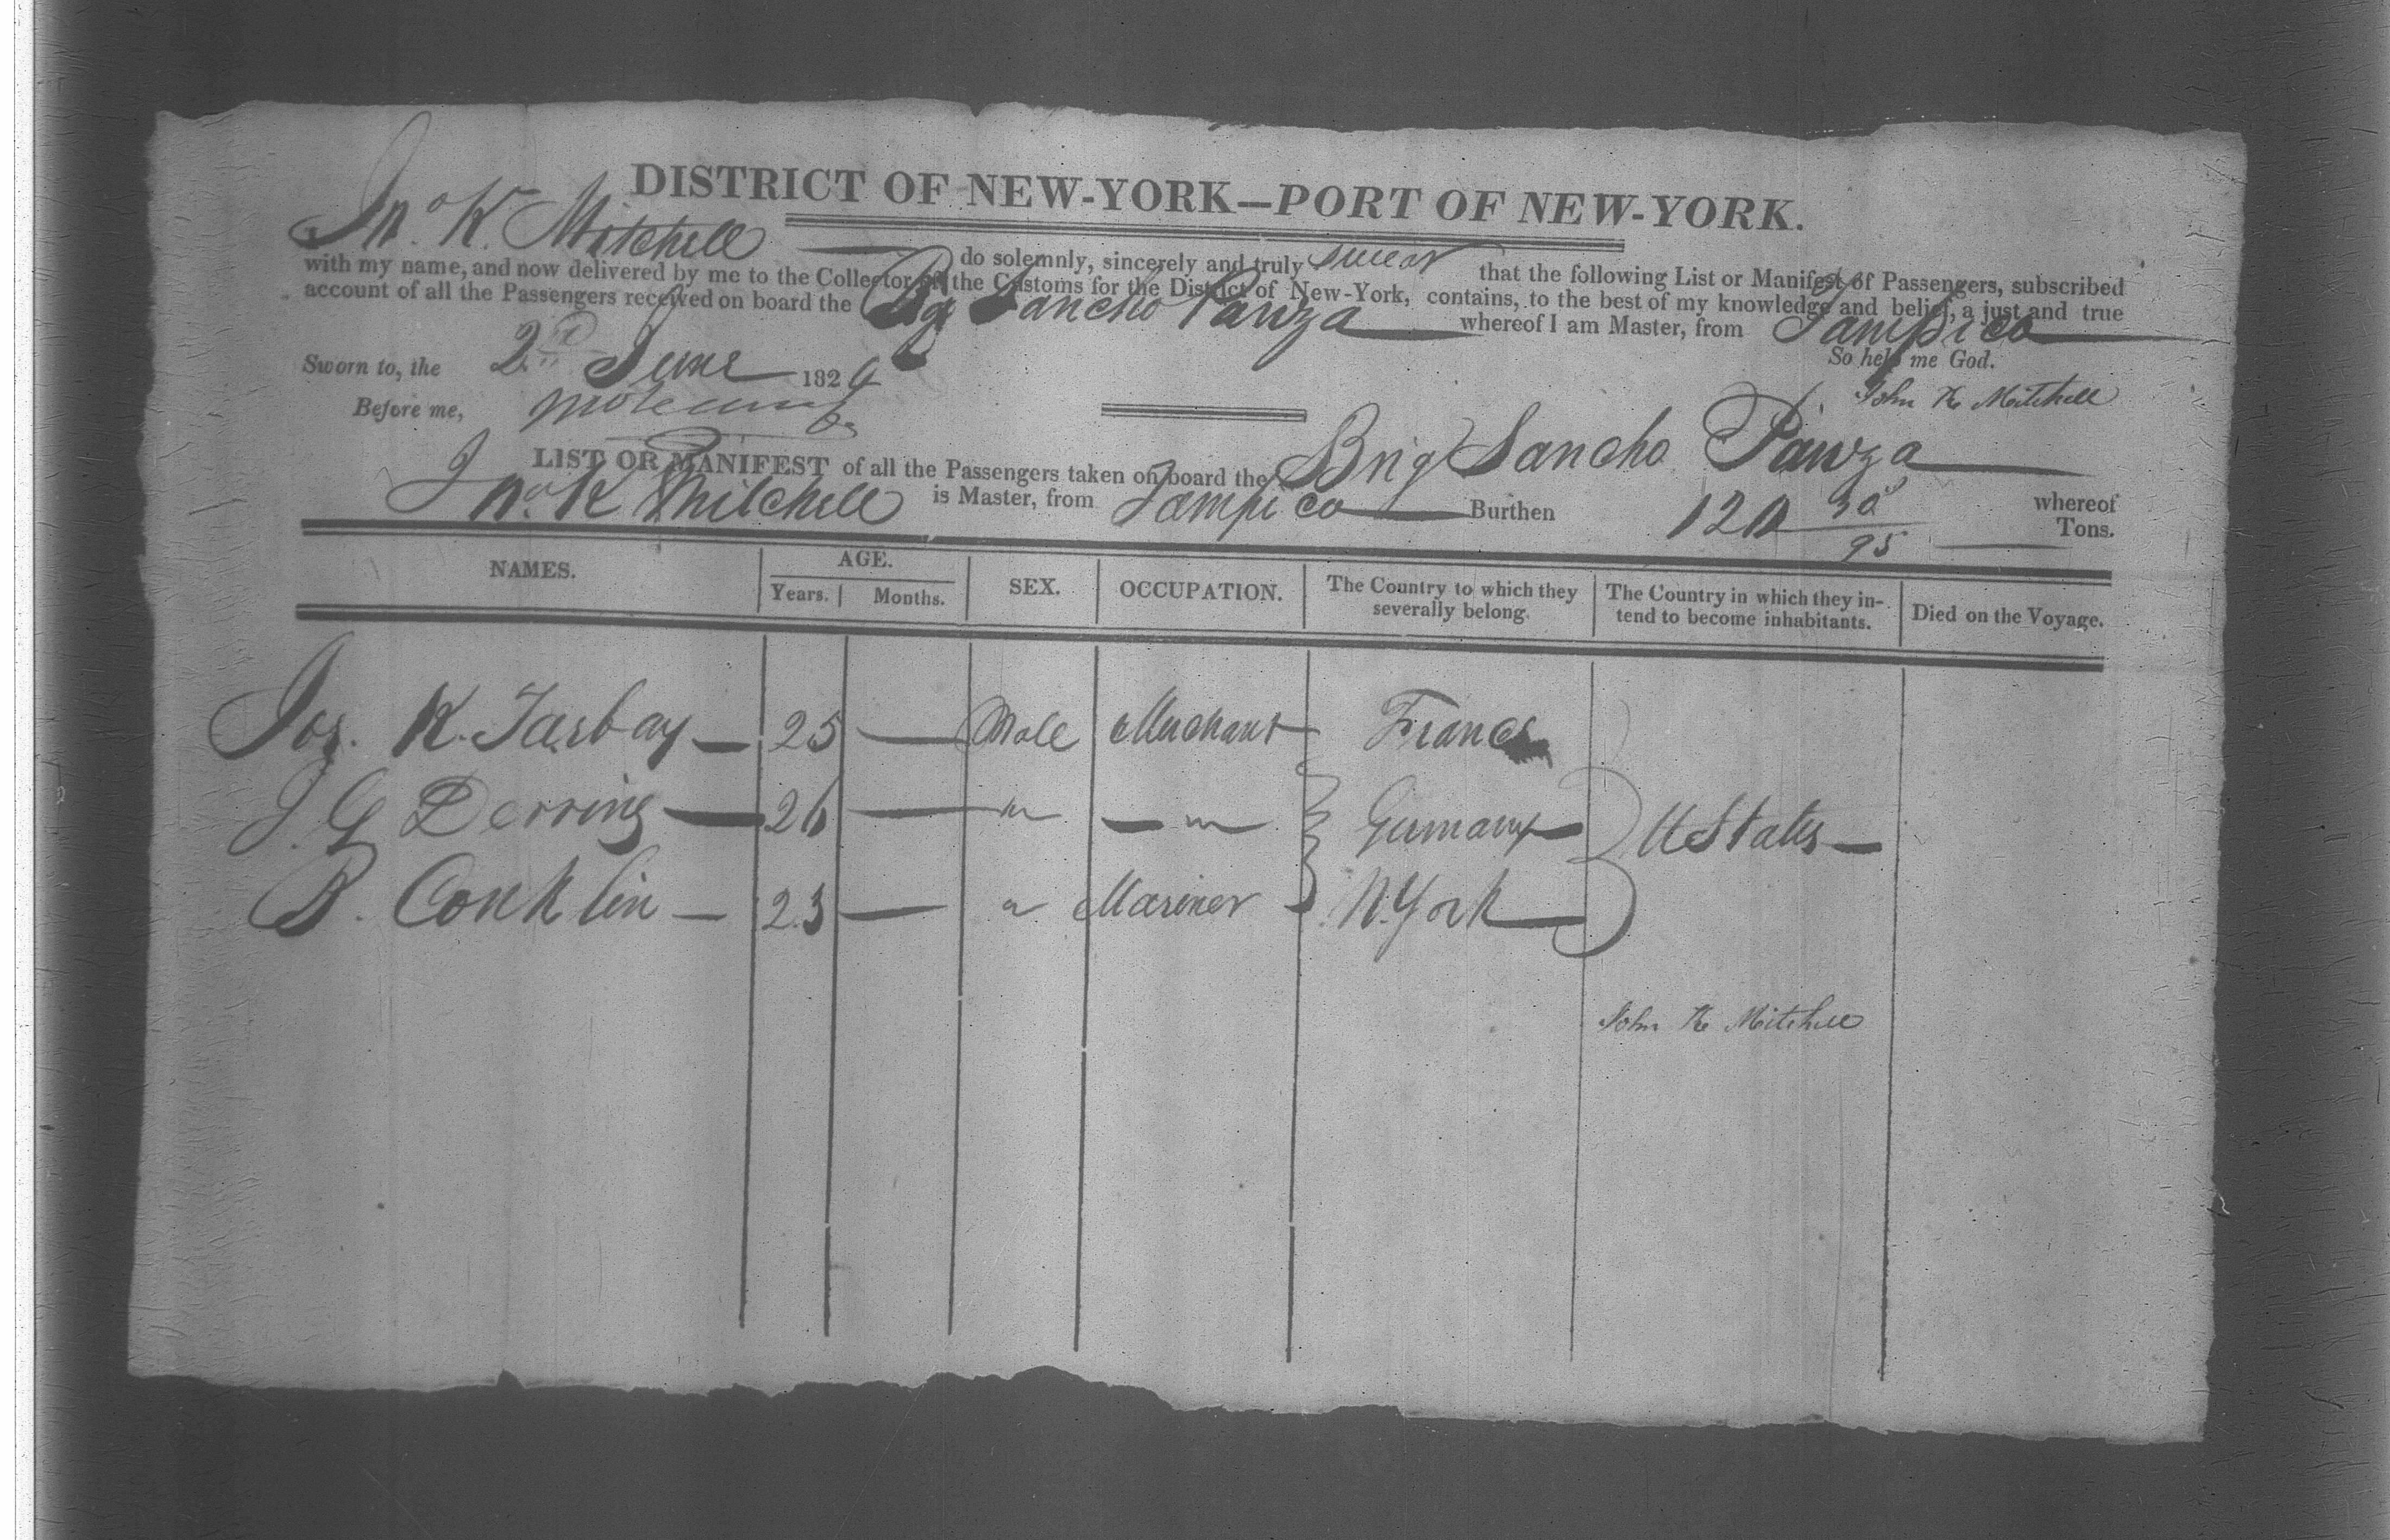 DISTRICT OF NEW-YORK—PORT OF NEW-YORK.
Jno. K. Mitchell do solemnly, sincerely and truly swear that the following List or Manifest of Passengers, subscribed
with my name, and now delivered by me to the Collector of the Customs for the District of New-York, contains, to the best of my knowledge and belief, a just and true
account of all the Passengers received on board the Bg Sancho Panza whereof I am Master, from Tampico
So help me God.
Sworn to, the 2nd June 182
John K Mitchell
Before me,
LIST OR MANIFEST of all the Passengers taken on board the Brig Sancho Panza whereof
Jno. K Mitchell is Master, from Tampico Burthen 30/95 Tons.
NAMES. AGE. SEX. OCCUPATION. The Country to which they severally belong. The Country in which they intend to become inhabitants. Died on the Voyage.
Years. Months.
Jos. K. Tarbay — 25 — Male Merchant France
J. G Derring — 26 — " — " — Germany — U States —
B. Conklin — 23 — " Mariner — N. York —
John K Mitchell